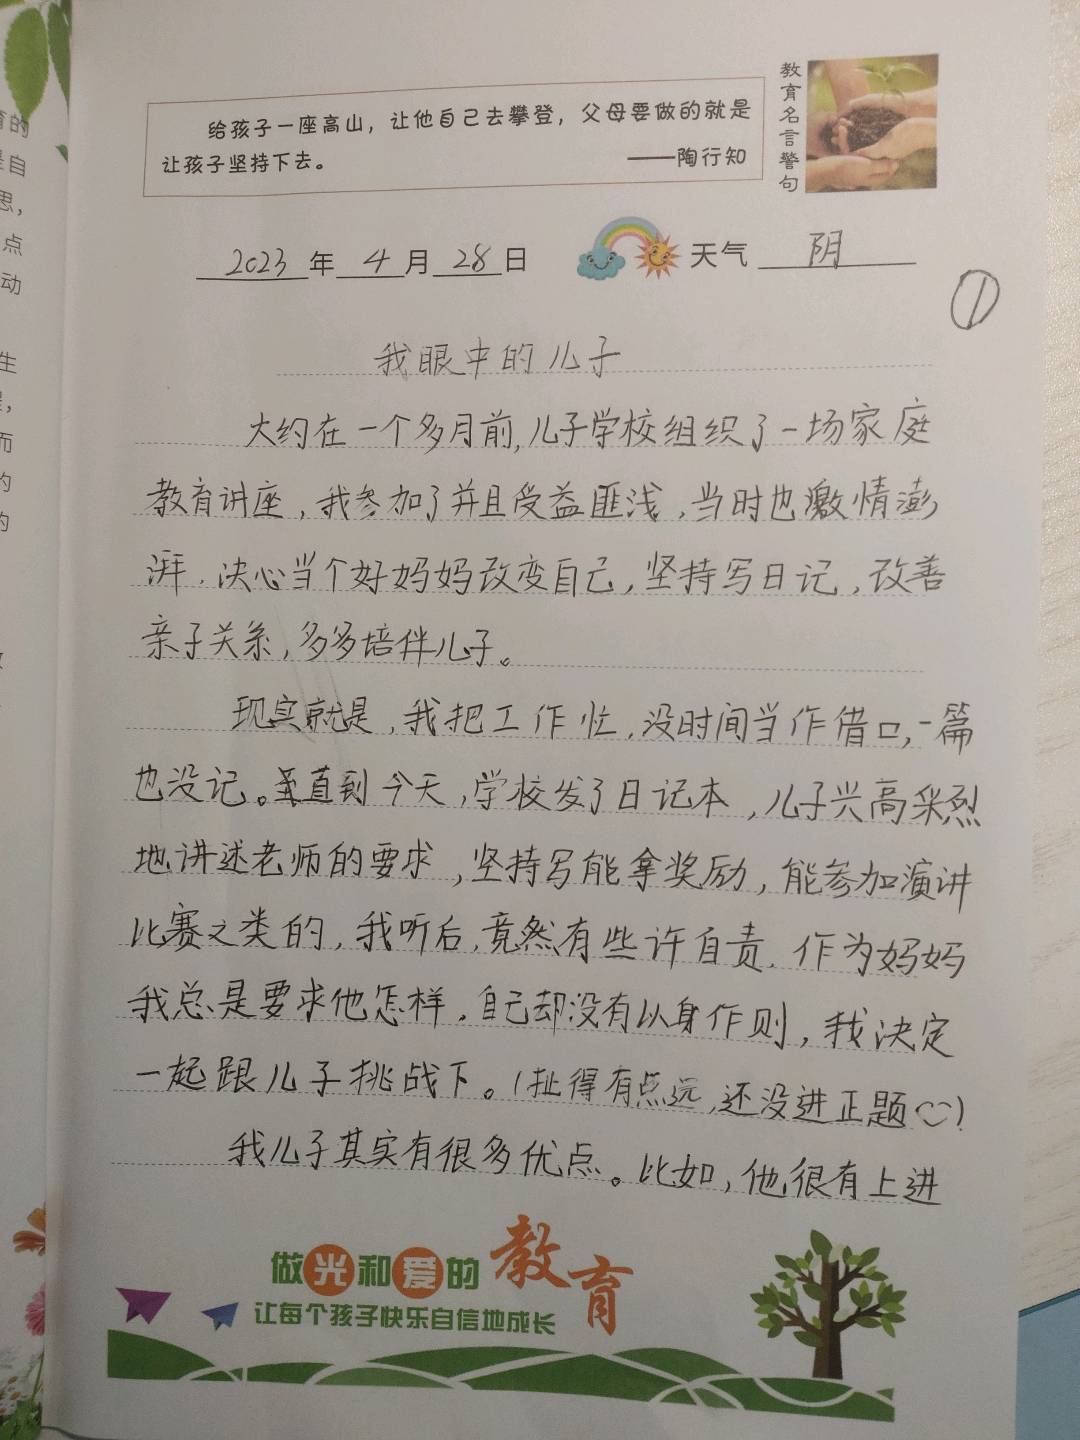 给孩子一座高山，让他自己去攀登，父母要做的就是
让孩子坚持下去。 ——陶行知
教育名言警句
2023年4月28日 天气 阴
①
我眼中的儿子
大约在一个多月前,儿子学校组织了一场家庭
教育讲座,我参加了并且受益匪浅,当时也激情澎
湃,决心当个好妈妈改变自己,坚持写日记,改善
亲子关系,多多培伴儿子。
现实就是,我把工作忙,没时间当作借口,一篇
也没记。直到今天,学校发了日记本,儿子兴高采烈
地讲述老师的要求,坚持写能拿奖励,能参加演讲
比赛之类的,我听后,竟然有些许自责,作为妈妈
我总是要求他怎样,自己却没有以身作则,我决定
一起跟儿子挑战下。(扯得有点远,还没进正题)
我儿子其实有很多优点。比如,他很有上进
做光和爱的教育
让每个孩子快乐自信地成长
育的
是自
思，
点
动
生
而
的
的